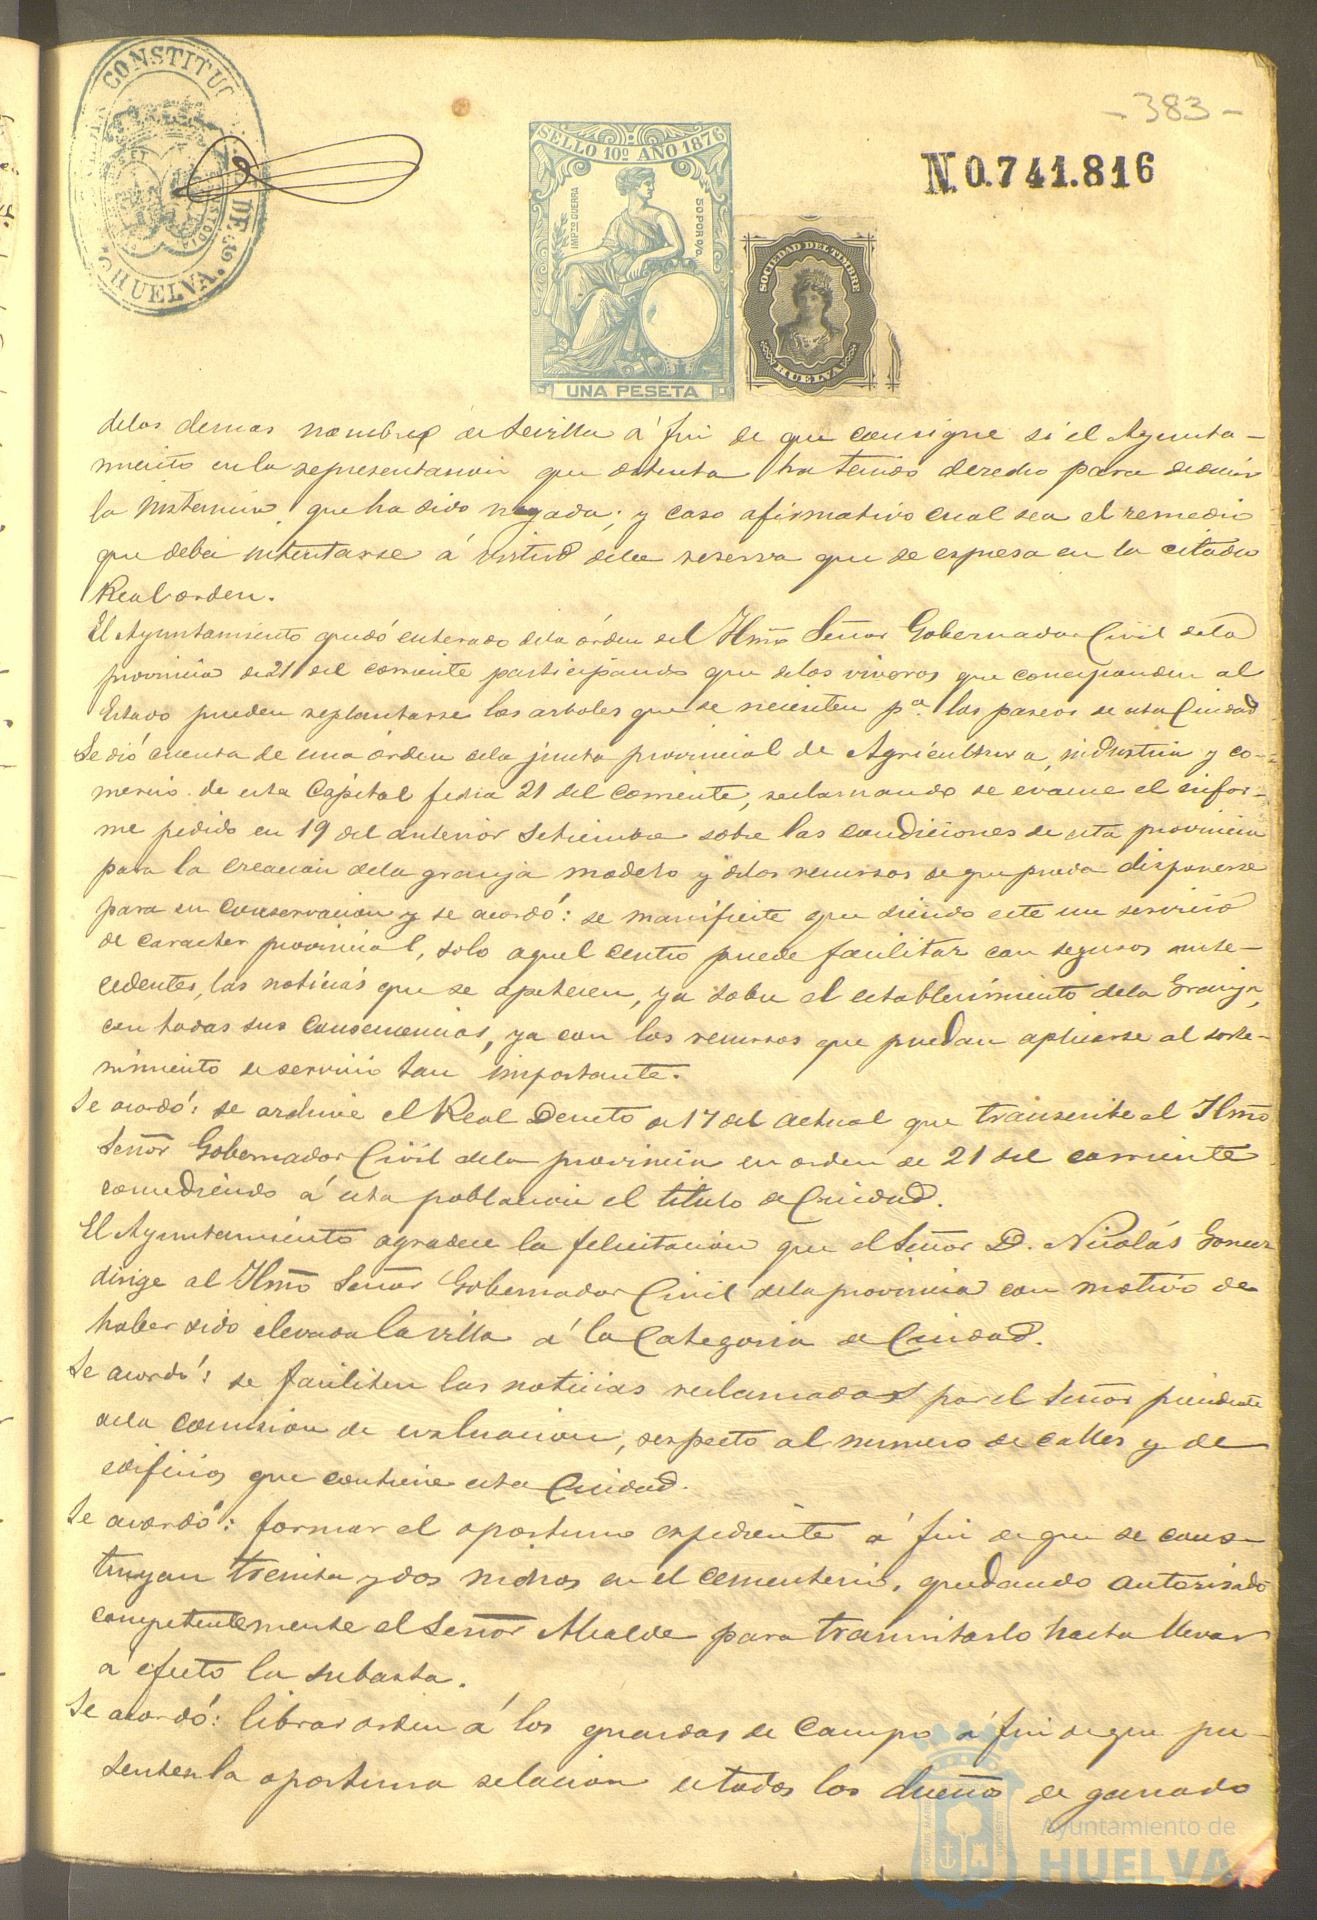 - 383 -
CONSTITUC
DE
HUELVA
SELLO 10º AÑO 1876
IMPTO GUERRA
50 POR 0/0.
UNA PESETA
SOCIEDAD DEL TIMBRE
HUELVA
N. 0.741.816
delos demas nombres de Sevilla á fin de que consigne si el Ayunta-
miento en la representacion que ostenta ha tenido derecho para deducir
la instancia que ha sido negada; y caso afirmativo cual sea el remedio
que deba intentarse á virtud dela reserva que se espresa en la citada
Real orden.
El Ayuntamiento quedó enterado dela órden del Ilmo Señor Gobernador Civil dela
provincia de 21 del corriente participando que delos viveros que corresponden al
Estado pueden replantarse los arboles que se necesiten pª los paseos de esta Ciudad
Se dió cuenta de una órden dela junta provincial de Agricultura, industria y co-
mercio de esta Capital fecha 21 del corriente, reclamando se evacue el infor-
me pedido en 19 del anterior Setiembre sobre las condiciones de esta provincia
para la creacion dela granja modelo y delos recursos de que pueda disponerse
para su conservacion y se acordó: se manifieste que siendo este un servicio
de caracter provincial, solo aquel centro puede facilitar con seguros ante-
cedentes, las noticias que se apetecen, ya sobre el establecimiento dela Granja,
con todas sus consecuencias, ya con los recursos que puedan aplicarse al soste-
nimiento de servicio tan importante.
Se acordó: se archive el Real Decreto de 17 del actual que transcribe el Ilmo
Señor Gobernador Civil dela provincia en orden de 21 del corriente
concediendo á esta poblacion el titulo de Ciudad.
El Ayuntamiento agradece la felicitacion que el Señor D. Nicolás Gomez
dirige al Ilmo Señor Gobernador Civil dela provincia con motivo de
haber sido elevada la villa á la Categoria de Ciudad.
Se acordó: se faciliten las noticias reclamadas por el Señor presidente
dela comision de evaluacion, respecto al numero de calles y de
edificios que contiene esta Ciudad.
Se acordó: formar el oportuno expediente á fin de que se cons-
truyan treinta y dos nichos en el cementerio, quedando autorizado
competentemente el Señor Alcalde para tramitarlo hasta llevar
á efecto la subasta.
Se acordó: librar orden á los guardas de campo á fin de que pre-
senten la oportuna relacion de todos los dueños de ganado
Ayuntamiento de
HUELVA